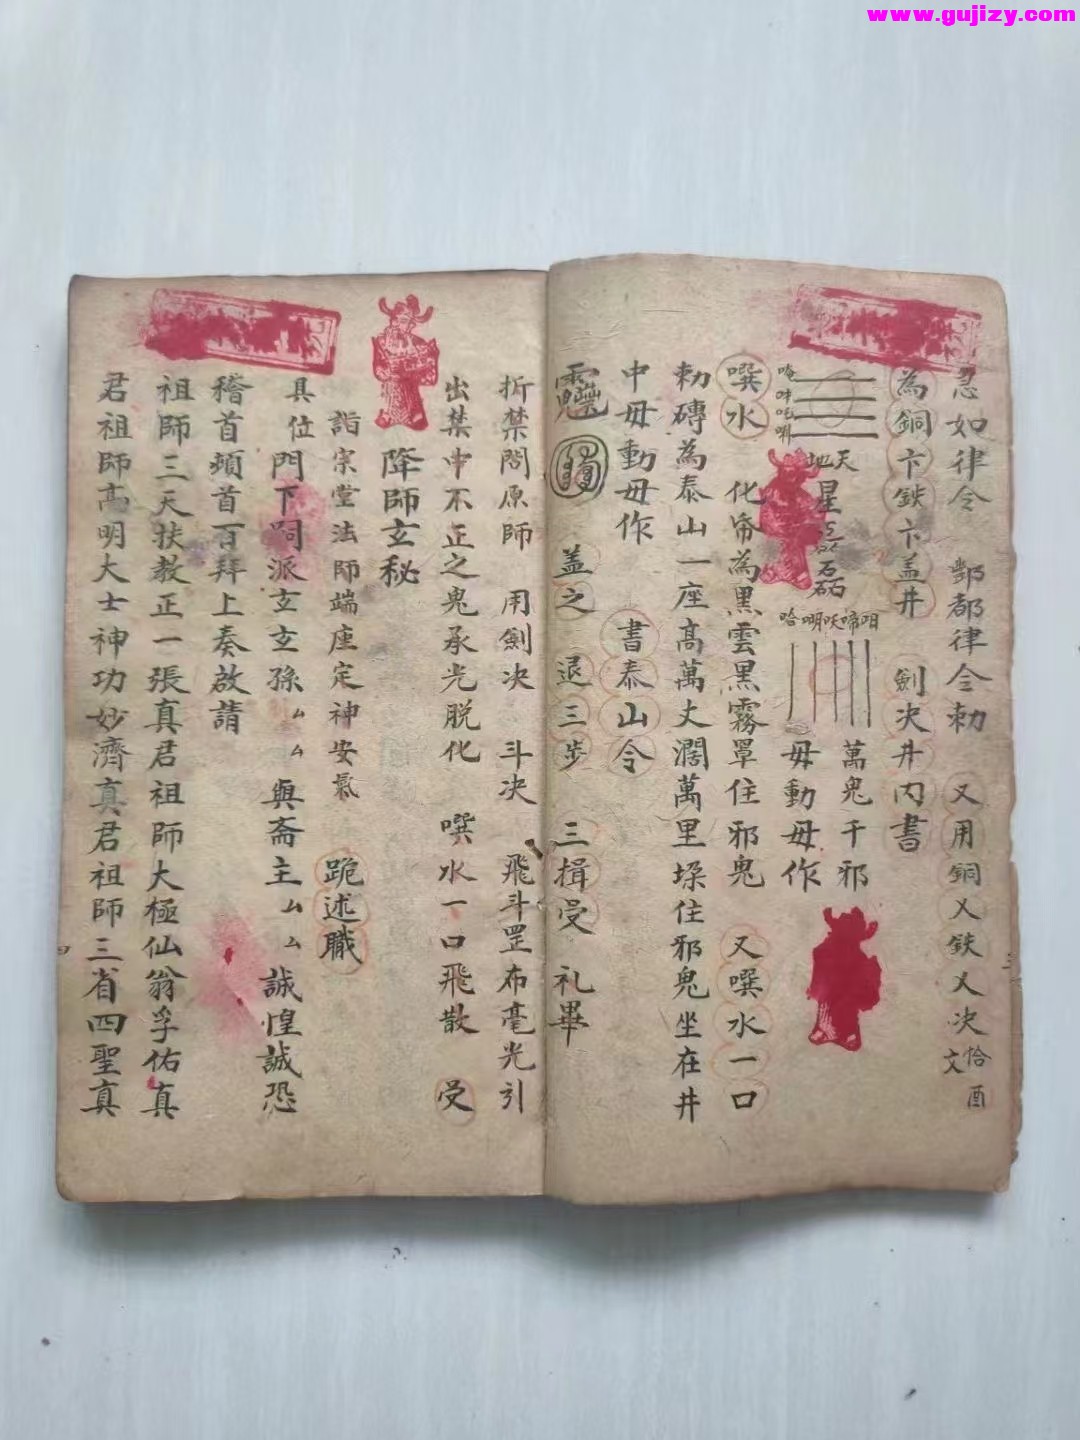 www.gujizy.com
急如律令 酆都律令勅 又用銅乂鉄乂决 恰酉文
為銅卞鉄卞盖井 劍决井内書
天地星
萬鬼千邪
毋動毋作
噀水 化帋為黑雲黑霧罩住邪鬼 又噀水一口
勅磚為泰山一座高萬丈濶萬里垛住邪鬼坐在井
中毋動毋作 書泰山令
盖之 退三步 三揖受 礼畢
折禁問原師 用劍决 斗决 飛斗罡布毫光引
出禁中不正之鬼承光脱化 噀水一口飛散 受
降師玄秘
詣宗堂法師端座定神安氣 跪述職
具位門下嗣派玄玄孫ㄙㄙ與斋主ㄙㄙ誠惶誠恐
稽首頓首百拜上奏啟請
祖師三天扶教正一張真君祖師大極仙翁孚佑真
君祖師高明大士神功妙濟真君祖師三省四聖真
四